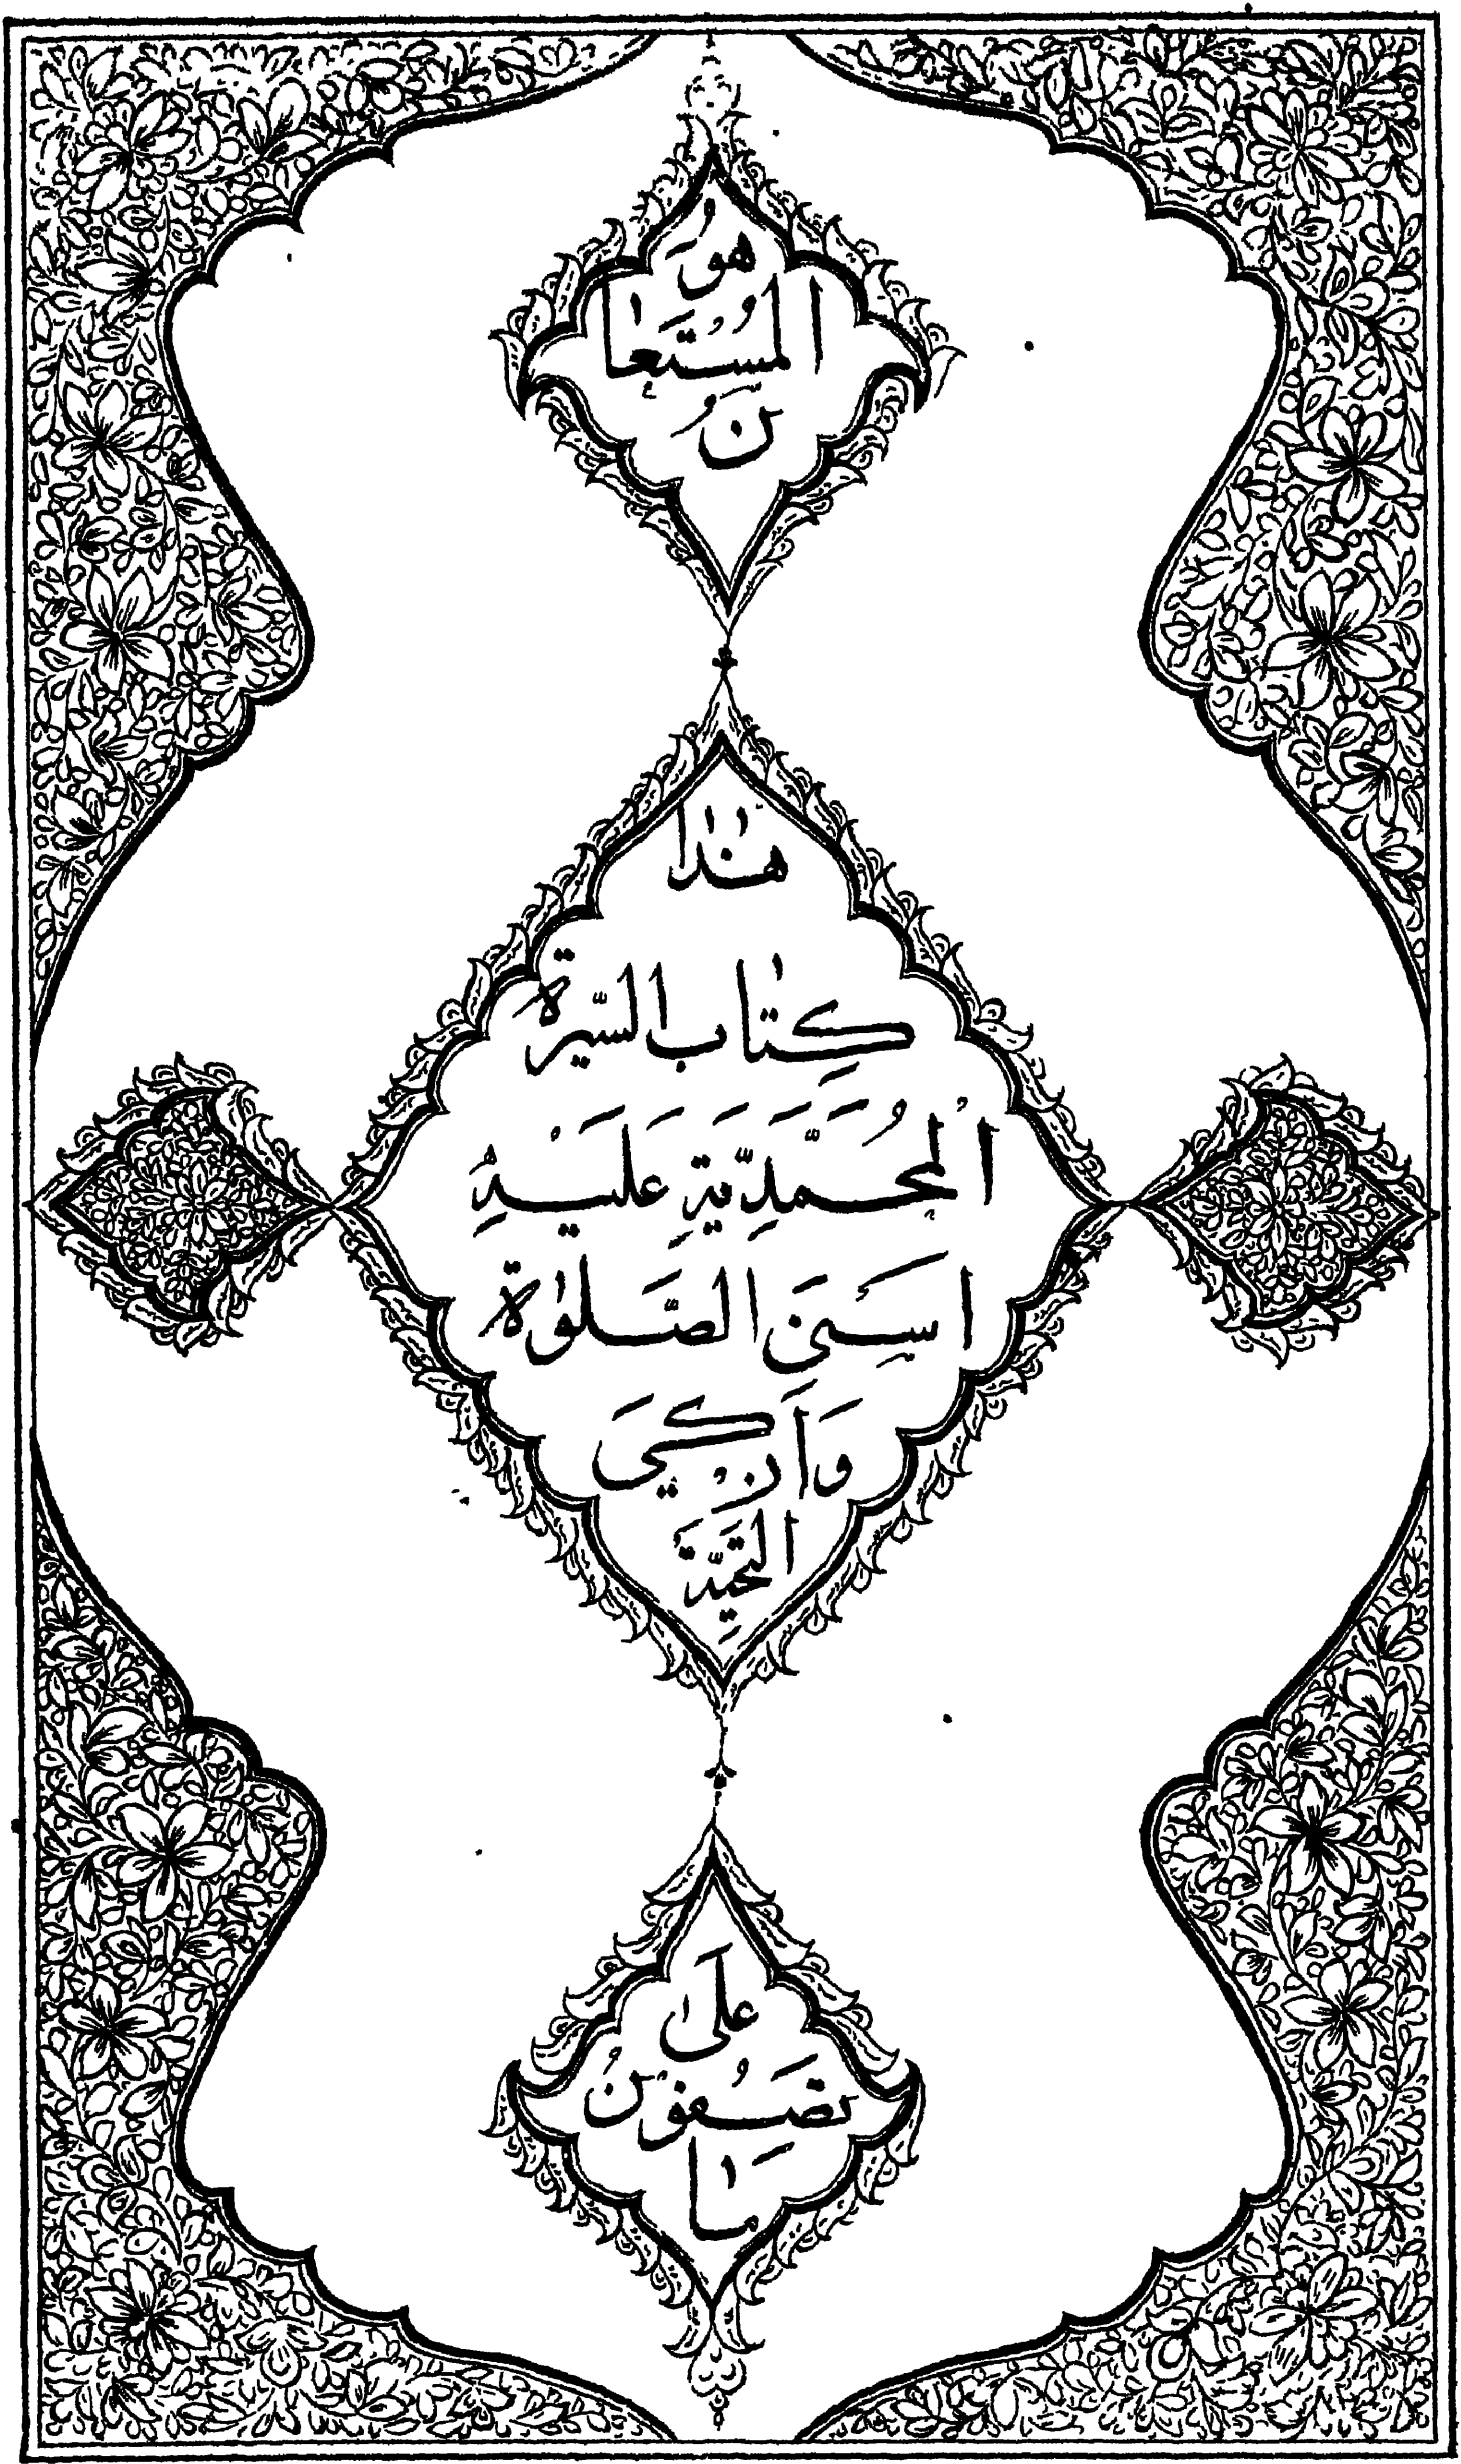 هُوَ
الْمُسْتَعَا
نُ
هٰذَا
كِتَابُ السِّيْرَةِ
الْمُحَمَّدِيَّةِ عَلَيْهِ
اَسْنَى الصَّلٰوةِ
وَاَزْكَى
التَّحِيَّةِ
عَلٰى
تَصِفُوْنَ
مَا